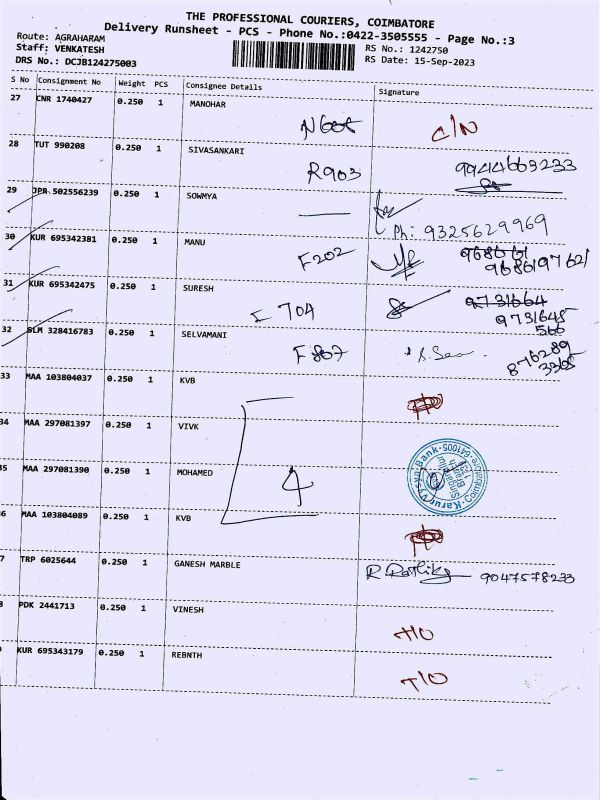 THE PROFESSIONAL COURIERS, COIMBATORE
Delivery Runsheet - PCS - Phone No.:0422-3505555 - Page No.:3
Route: AGRAHARAM
Staff: VENKATESH
DRS No.: DCJB124275003
RS No.: 1242750
RS Date: 15-Sep-2023
S No Consignment No Weight PCS Consignee Details Signature
27 CNR 1740427 0.250 1 MANOHAR C/N
28 TUT 990208 0.250 1 SIVASANKARI R903 9944663233
29 JPR 502556239 0.250 1 SOWMYA
Ph: 9325629969
30 KUR 695342381 0.250 1 MANU F202
9686019762
31 KUR 695342475 0.250 1 SURESH I 704 9731664
9731645
566
32 SLM 328416783 0.250 1 SELVAMANI 876289
3365
33 MAA 103804037 0.250 1 KVB
34 MAA 297081397 0.250 1 VIVK
35 MAA 297081390 0.250 1 MOHAMED 4
6 MAA 103804089 0.250 1 KVB
7 TRP 6025644 0.250 1 GANESH MARBLE 9047578233
8 PDK 2441713 0.250 1 VINESH
KUR 695343179 0.250 1 REBNTH T/O
Karur Vysya Bank